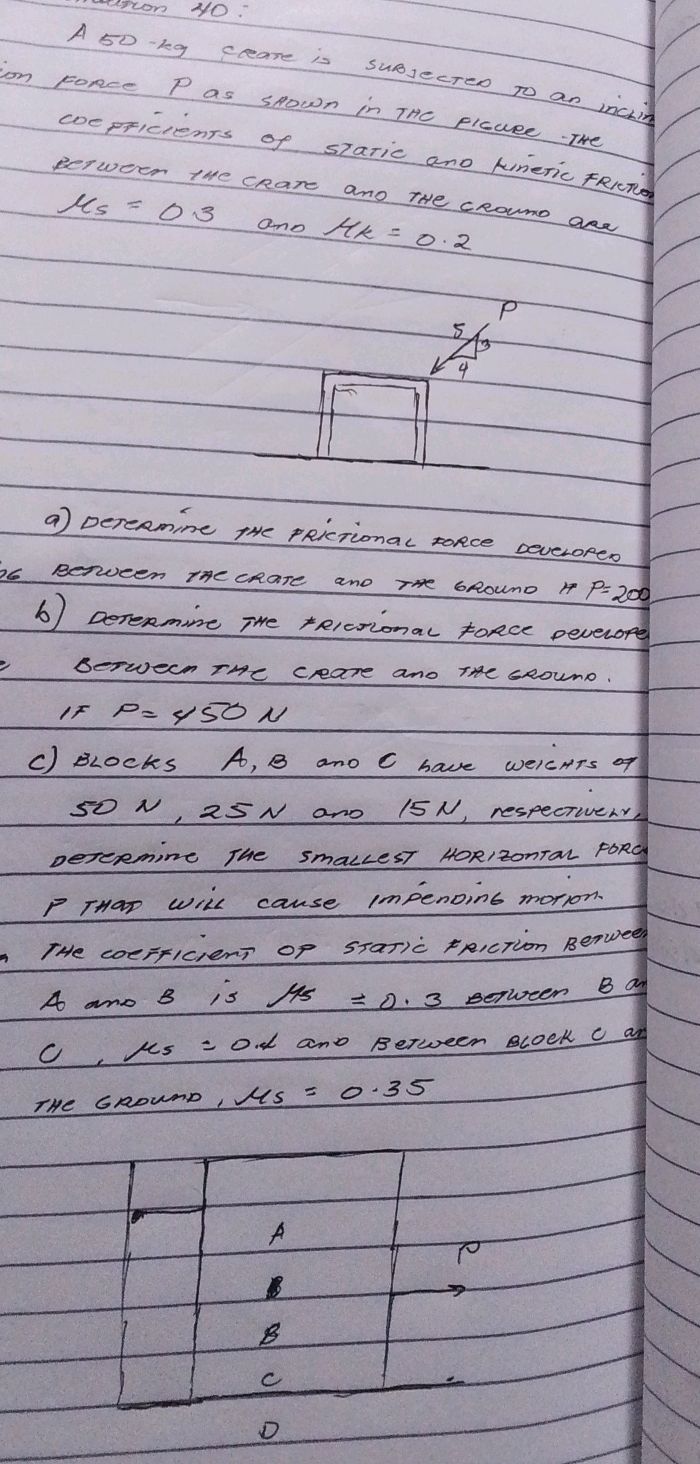 40:
A 50-kg crate is subjected to an
force P as shown in the figure the
coefficients of static and kinetic
between the crate and the ground are
μs = 0.3 and μk = 0.2
P
5
3
4
a) Determine the frictional force developed
between the crate and the ground if P=200
b) Determine the frictional force
between the crate and the ground.
if P = 450 N
c) Blocks A, B and C have weights of
50 N, 25 N and 15 N, respectively,
determine the smallest horizontal
P that will cause impending motion.
The coefficient of static friction
A and B is μs = 0.3 between B
C, μs = 0.4 and between block C
the ground, μs = 0.35
A
P
B
B
C
D